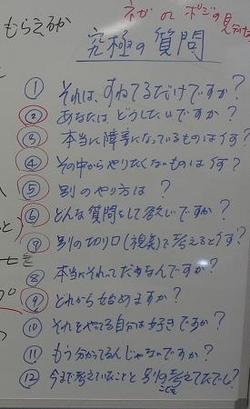 もらえるか
ネガ or ポジの見方
究極の質問
① それは、すねてるだけですか?
② あなたは どうしたいですか?
③ 本当に障害になっているものは何?
④ その中からやりたくないものは何?
⑤ 別のやり方は?
⑥ どんな質問をして欲しいですか?
⑦ 別の切り口(視点)で考えると何?
⑧ 本当にそれってだめなんですか?
⑨ どれから始めますか?
⑩ それをやってる自分は好きですか?
⑪ もう分かってるんじゃないですか?
⑫ 今まで考えていたことと 別のこと考えてたでしょ?